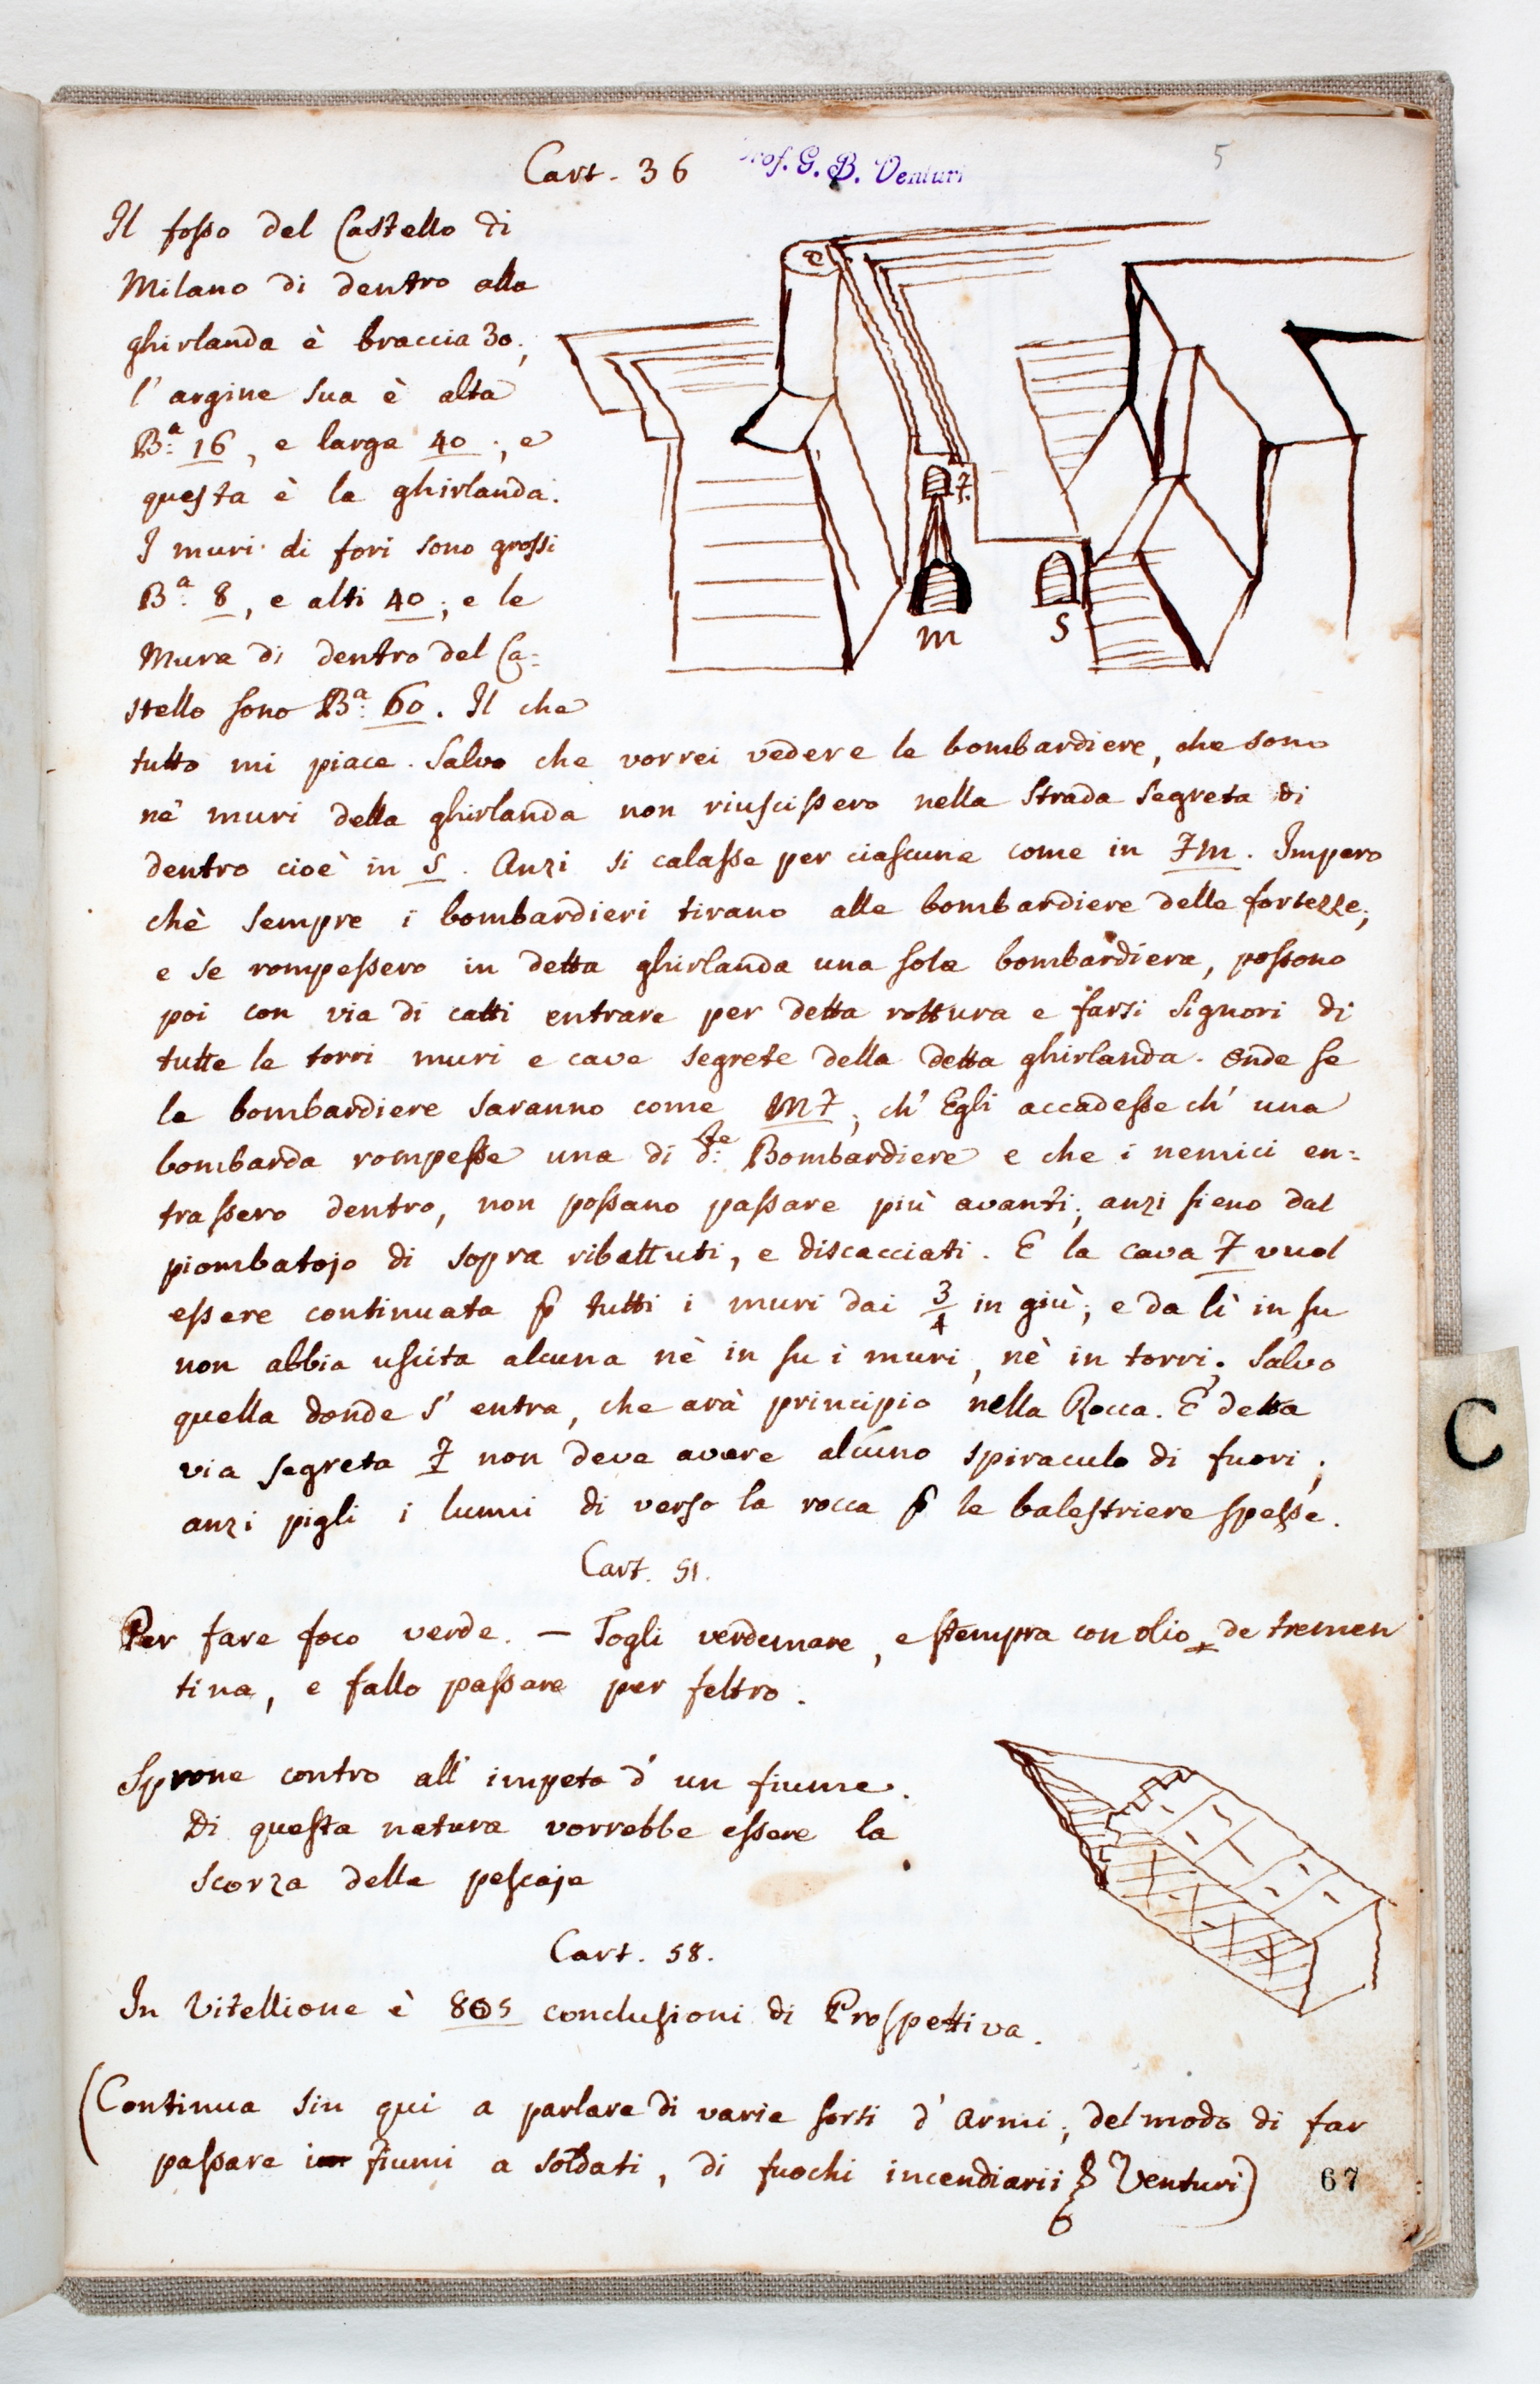 Cart. 36 Prof. G. B. Venturi 5
Il fosso del Castello di
Milano di dentro alla
ghirlanda è braccia 30;
l' argine sua è alta
B.ª 16, e larga 40; e
questa è la ghirlanda.
I muri di fori sono grossi
B.ª 8, e alti 40; e le
Mura di dentro del Ca=
stello sono B.ª 60. Il che
e
7
m
S
tutto mi piace. Salvo che vorrei vedere le bombardiere, che sono
ne' muri della ghirlanda non riuscissero nella Strada Segreta di
dentro cioè in S. Anzi si calasse per ciascuna come in 7m. Impero
chè sempre i bombardieri tirano alle bombardiere delle fortezze;
e se rompessero in detta ghirlanda una sola bombardiera, possono
poi con via di catti entrare per detta rottura e farsi Signori di
tutte le torri muri e cave segrete della detta ghirlanda. Onde se
le bombardiere saranno come m7; ch' Egli accadesse ch' una
bombarda rompesse una di d:te Bombardiere e che i nemici en=
trassero dentro, non possano passare più avanti; anzi sieno dal
piombatojo di sopra ribattuti, e discacciati. E la cava 7 vuol
essere continuata p tutti i muri dai 3/4 in giù; e da lì in su
non abbia uscita alcuna nè in su i muri, nè in torri; Salvo
quella donde s' entra, che arà principio nella Rocca. E detta
via segreta 7 non deve avere alcuno spiraculo di fuori;
anzi pigli i lumi di verso la rocca p le balestriere spesse.
Cart. 51.
Per fare foco verde. — Togli verdemare, e stempra con olio de tremen
tina, e fallo passare per feltro.
Sprone contro all' impeto d' un fiume.
Di questa natura vorrebbe essere la
scorza della pescaja
Cart. 58.
In Vitellione è 805 conclusioni di Prospettiva.
(Continua sin qui a parlare di varie sorti d' Armi; del modo di far
passare fiumi a soldati, di fuochi incendiarii & Venturi) 67
C